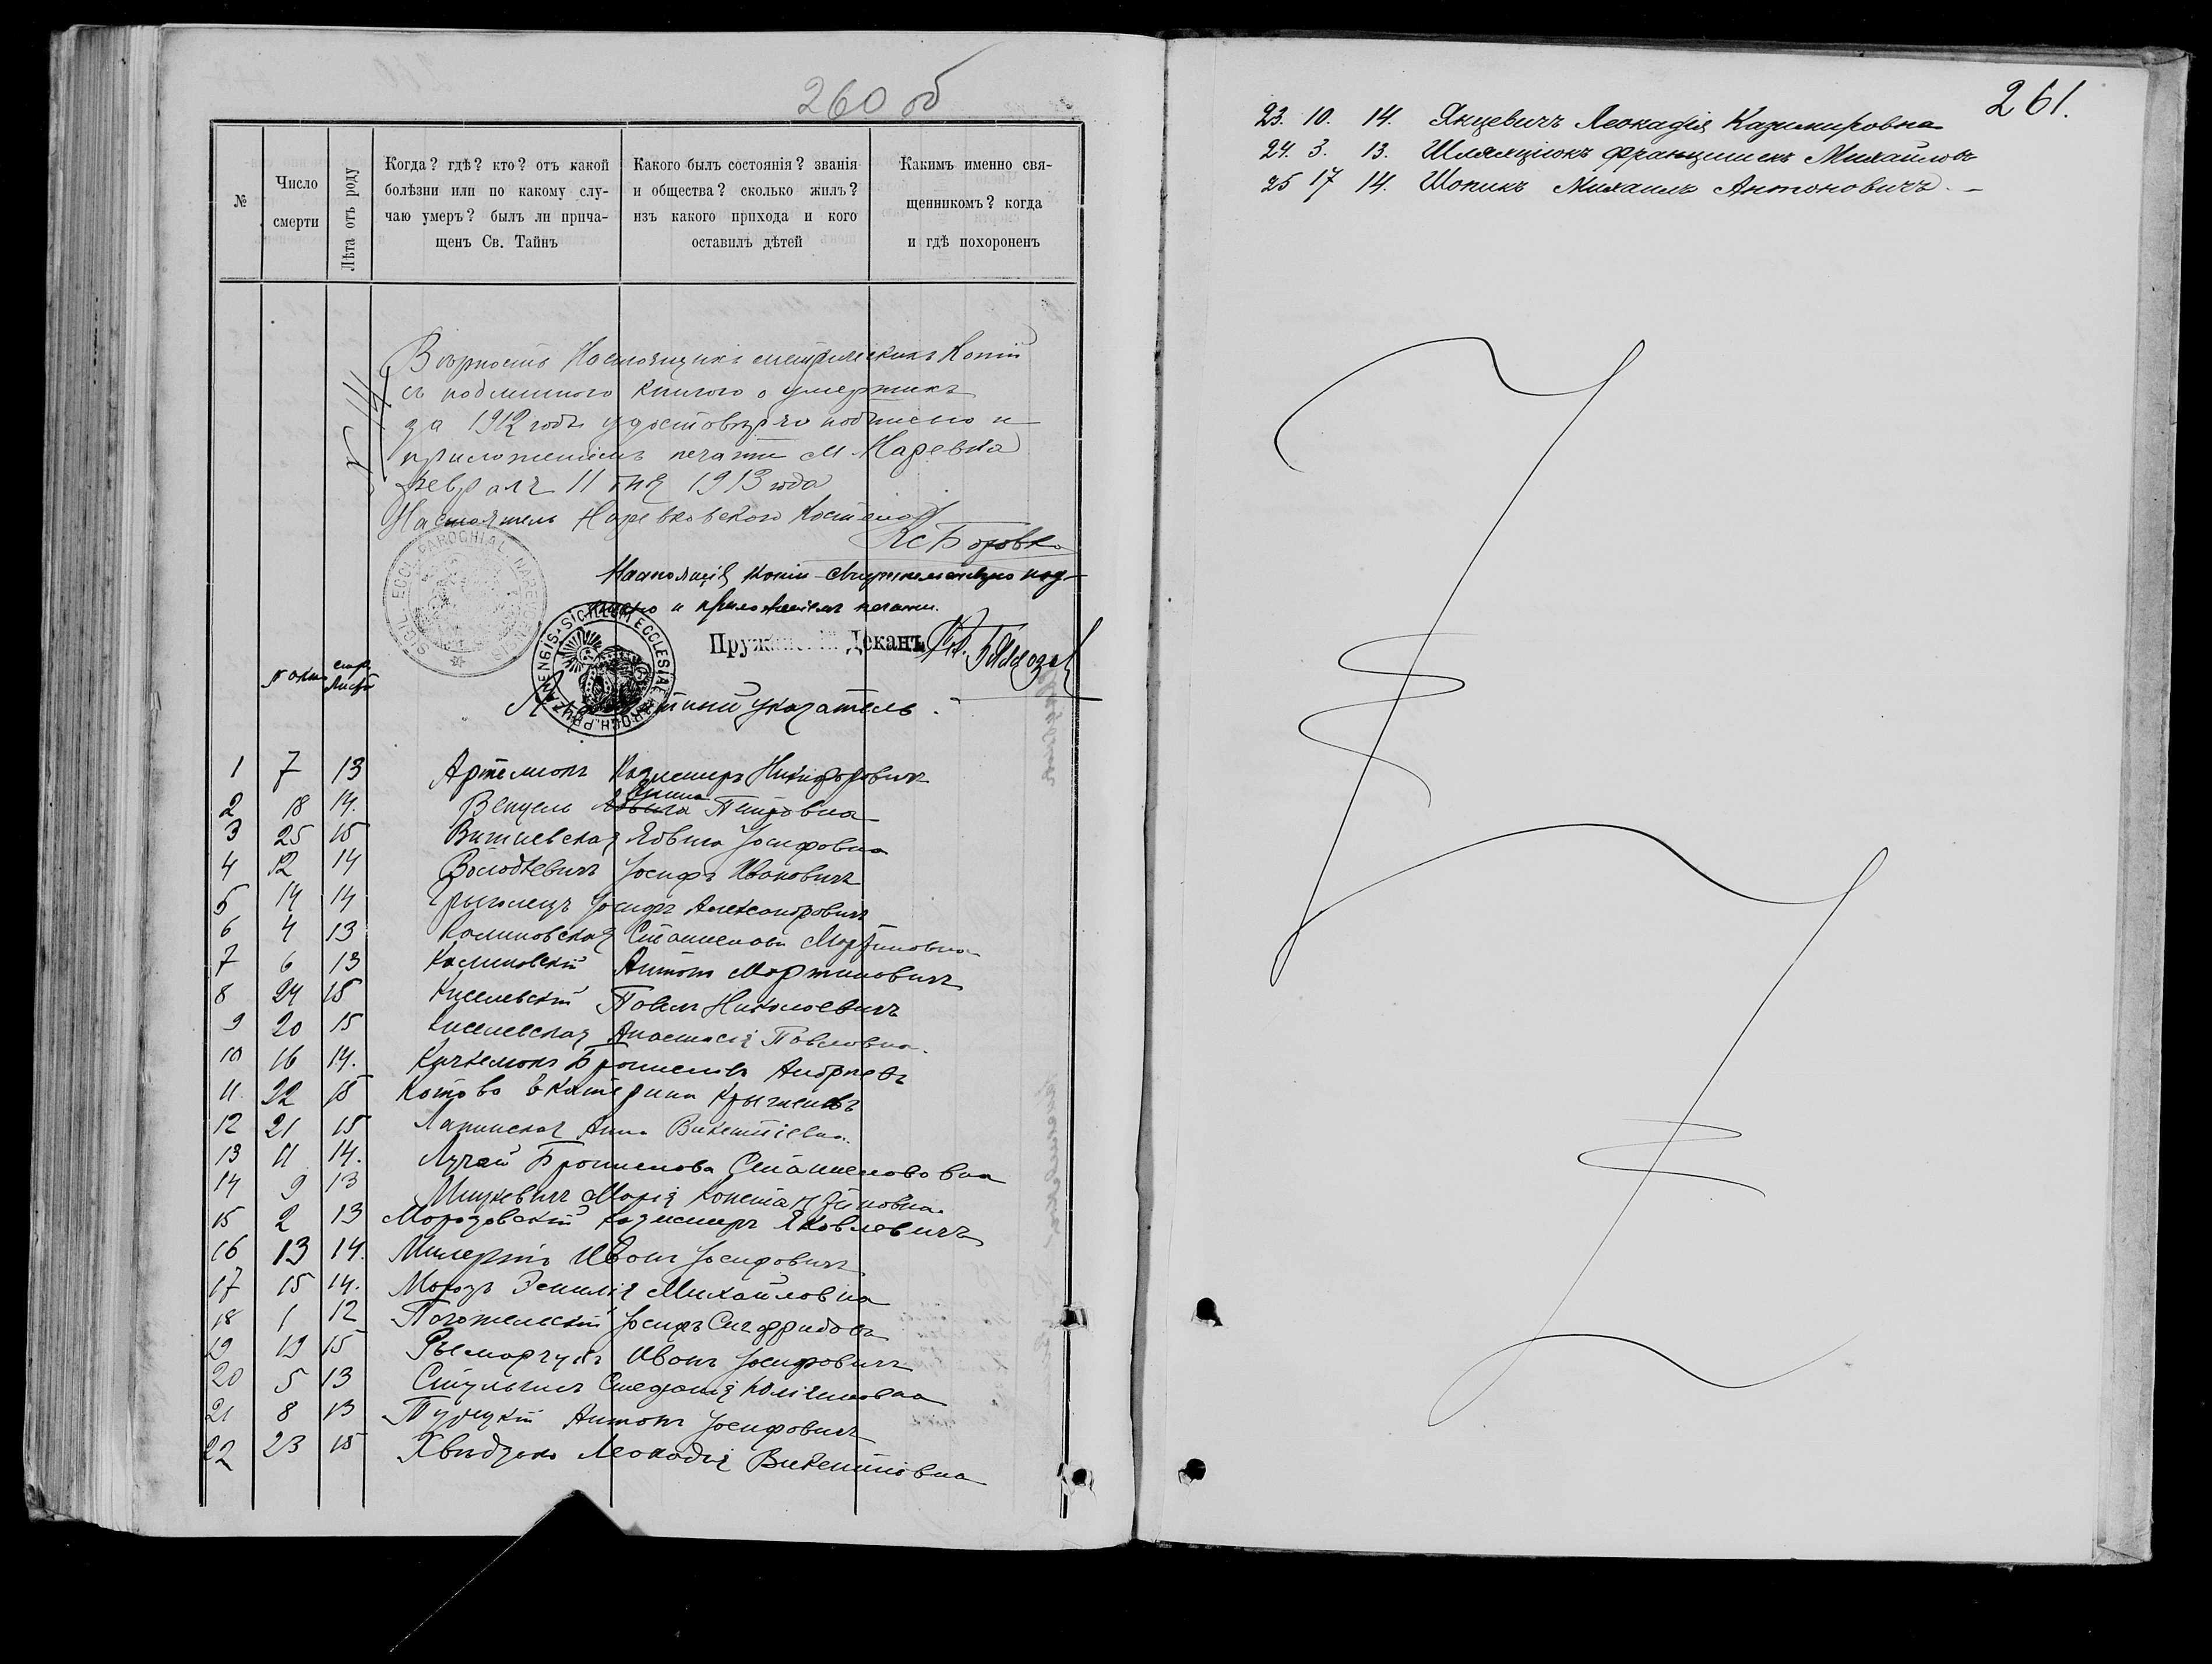 260 об
№
Число смерти
Лѣта отъ роду
Когда? гдѣ? кто? отъ какой
болѣзни или по какому слу-
чаю умеръ? былъ ли прича-
щенъ Св. Тайнъ
Какого былъ состоянія? званія
и общества? сколько жилъ?
изъ какого прихода и кого
оставилъ дѣтей
Какимъ именно свя-
щенникомъ? когда
и гдѣ похороненъ
Вѣрность Настоящихъ метрическихъ Копій
съ подлинного книгою о умершихъ
за 1912 годъ удостовѣряю подписью и
приложеніемъ печати М. Наревка
февраля 11 дня 1913 года
Настоятель Наревковского Костела
Кс Боровко
SIGIL. ECCL. PAROCHIAL. NAREVCENSIS
Настоящія копіи свидѣтельствую под-
писью и приложеніемъ печати.
SIGILLUM ECCLESIAE PAROCH. PRUZANENSIS
Пружанскій Деканъ Кс.
№ акта
стр. листа
указатель.
1 7 13 Артемюкъ Казимиръ Никифоровичъ
2 18 14. Венцель Петровна
3 25 15 Ядвига Іосифовна
4 12 14 Володкевичъ Іосифъ Ивановичъ
5 14 14 Іосифъ Александровичъ
6 4 13 Калиновская Станислава Мартиновна
7 6 13 Калиновскій Антонъ Мартиновичъ
8 24 15 Киселевскій Павелъ Николаевичъ
9 20 15 Киселевская Анастасія Павловна.
10 16 14. Брониславъ Андреевъ
11. 22 15 Котово Екатерина
12 21 15 Лапинская Анна Викентіевна.
13 11 14. Лучай Бронислова Станиславовна
14 9 13 Мицкевичъ Марія Константиновна.
15 2 13 Морозовскій Казимиръ Яковлевичъ
16 13 14. Иванъ Іосифовичъ
17 15 14. Морозъ Эмилія Михайловна
18 1 12 Погожельскій Іосифъ Сигфридовъ
19 19 15 Рымарчукъ Иванъ Іосифовичъ
20 5 13 Стефанія Юліановна
21 8 13 Турецкій Антонъ Іосифовичъ
22 23 15 Леокадія Викентіевна
261.
23. 10. 14. Янцевичъ Леокадія Казимировна
24. 3. 13. Шляхцюкъ Францишекъ Михайловъ
25 17 14. Шопикъ Михаилъ Антоновичъ. —